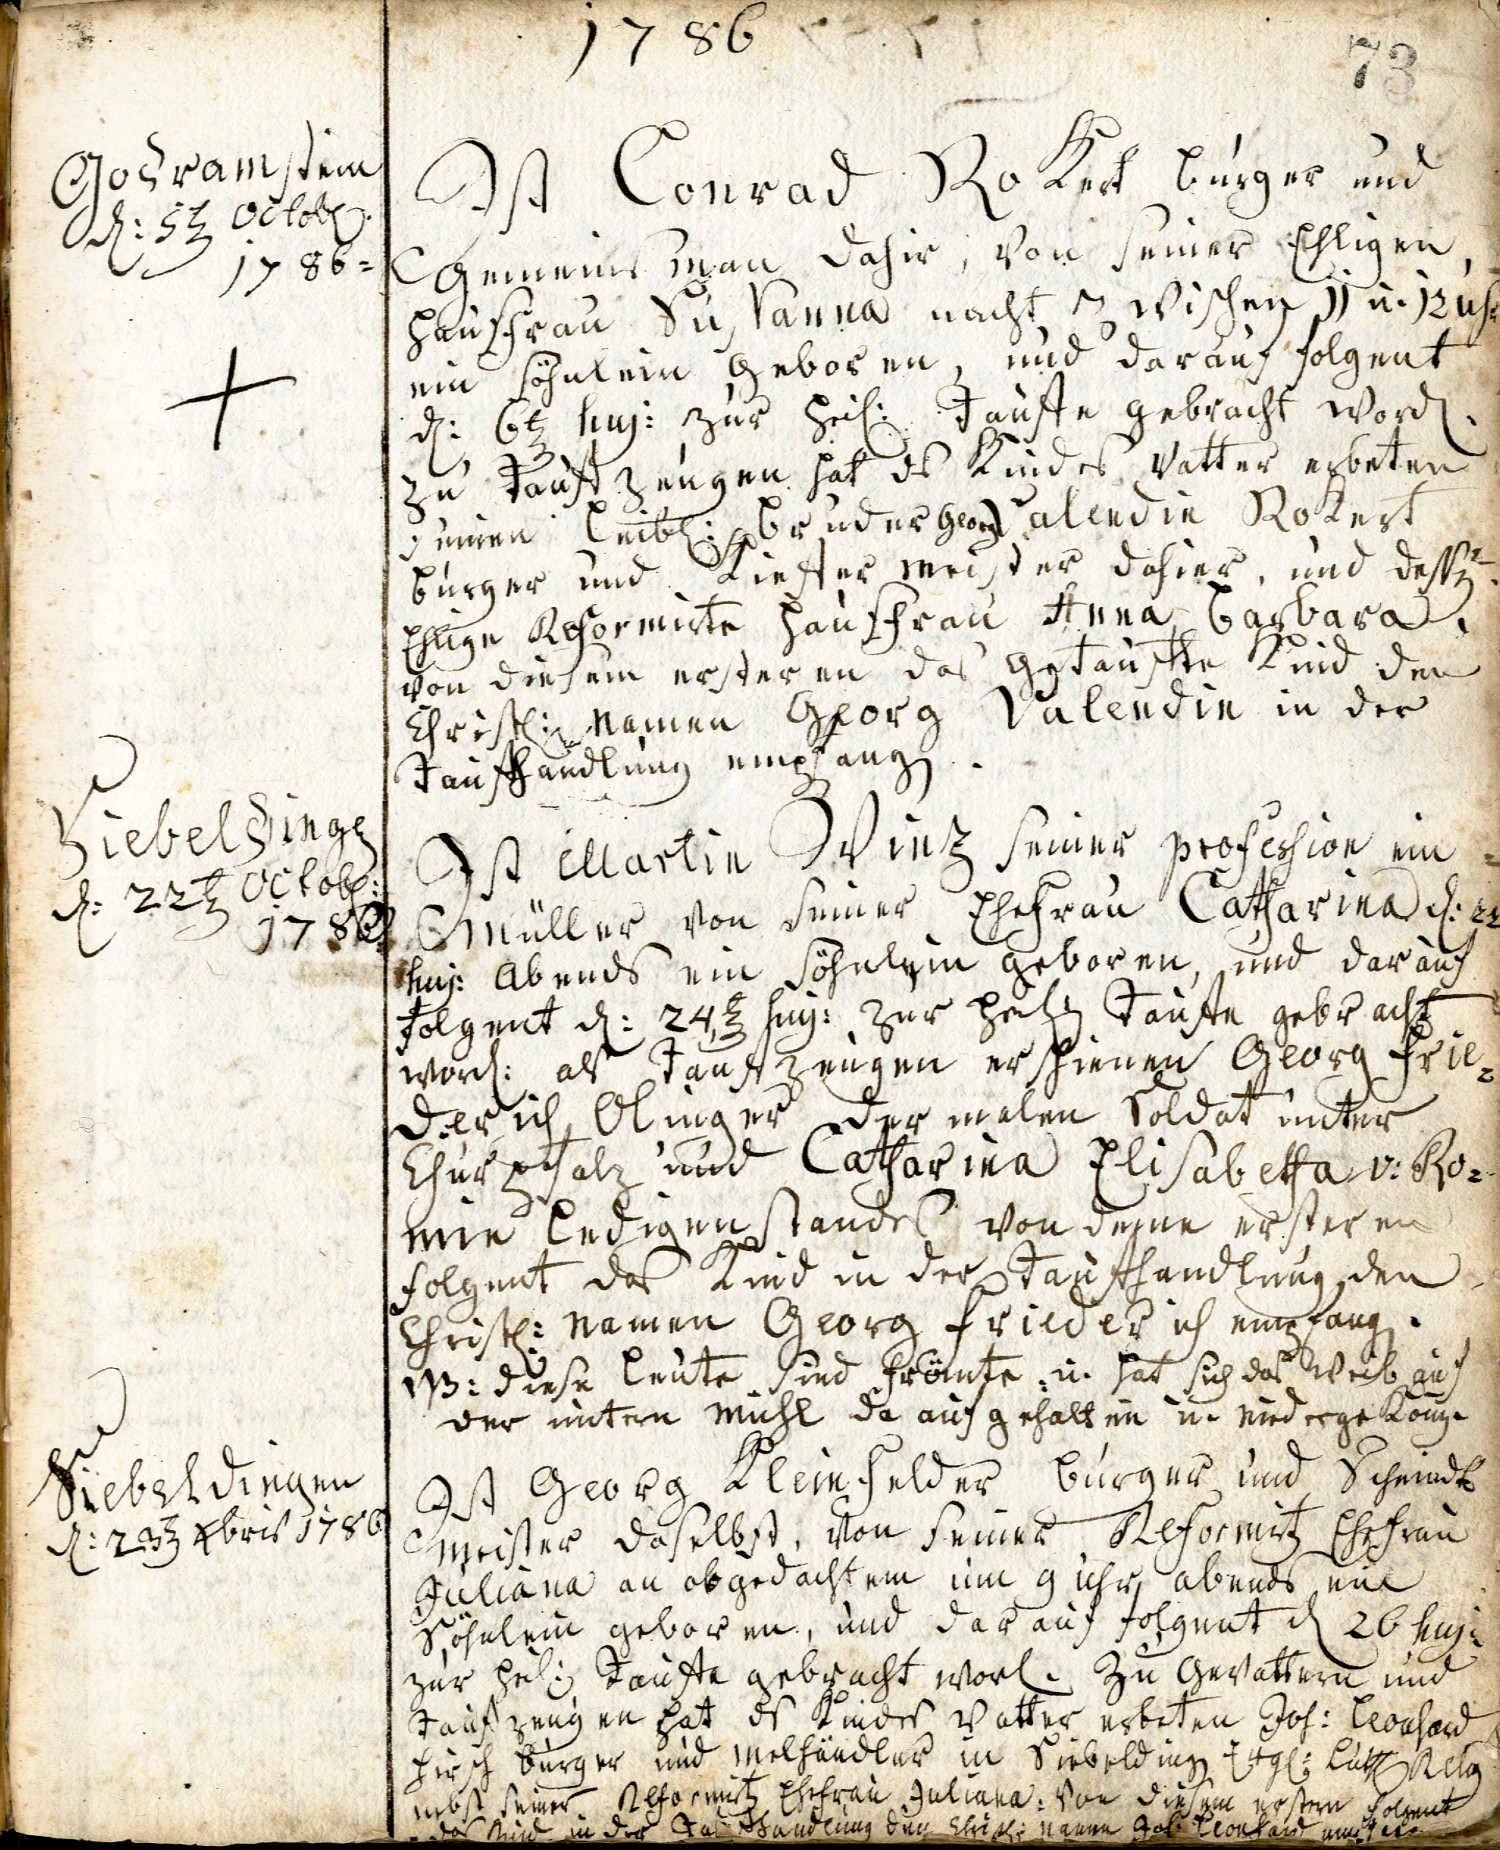 1786
73
Godramstein
d: 5t October
1786=
Ist Conrad Rokert burger und
Gemeins man dahir, von seiner Ehligen
haußfrau Susanna nacht zwischen 11 u. 12 uhr
ein söhnlein geboren, und darauf folgent
d: 6t huj: zur heil: Taufte gebracht word.
zu Tauftzeugen hat ds Kindes Vatter erbeten
seinen leibl: bruder Georg Valendin Rokert
burger und Kieffer meister dahier, und dessen
Ehlige Reformirte haußfrau Anna barbara.
von diesem ersteren das getaufte Kind den
Christl: Namen Georg Valendin in der
Taufthandlung empfang.
Siebelding
d: 22t Octob:
1786
Ist Martin Wintz seiner profession ein
Müller von seiner Ehefrau Catharina d: 22
huj: Abends ein söhnlein geboren, und darauf
folgent d: 24t huj: zur heil: Taufte gebracht
word: als Tauftzeugen erschienen Georg Frie=
derich Olinger der malen Soldat unter
Churpfalz und Catharina Elisabetha v: Ro=
mie ledigen standes von deme ersteren
folgent das Kind in der Taufthandlung den
Christl: Namen Georg Friederich empfang.
NB: diese leute sind frömte u. hat sich das Weib auf
der untern Mühl da aufgehalten u. niedergekom.
Siebeldingen
d: 23t Xbris 1786
Ist Georg Kleinfelder burger und Schmidt
Meister daselbst, von seiner Reformirt Ehefrau
Juliana an obgedachtem um 9 uhr abends ein
Söhnlein geboren, und darauf folgent d 26 huj:
zur heil: Taufte gebracht word. Zu Gevattern und
Taufzeugen hat ds Kindes Vatter erbeten Joh: Leonhard
Hirsch burger und Melhändler in Siebelding Luth Relig
nebst seiner Reformirt Ehefrau Juliana: von diesem erstern folgent
das Kind in der Taufthandlung den Christl: Namen Joh Leonhard